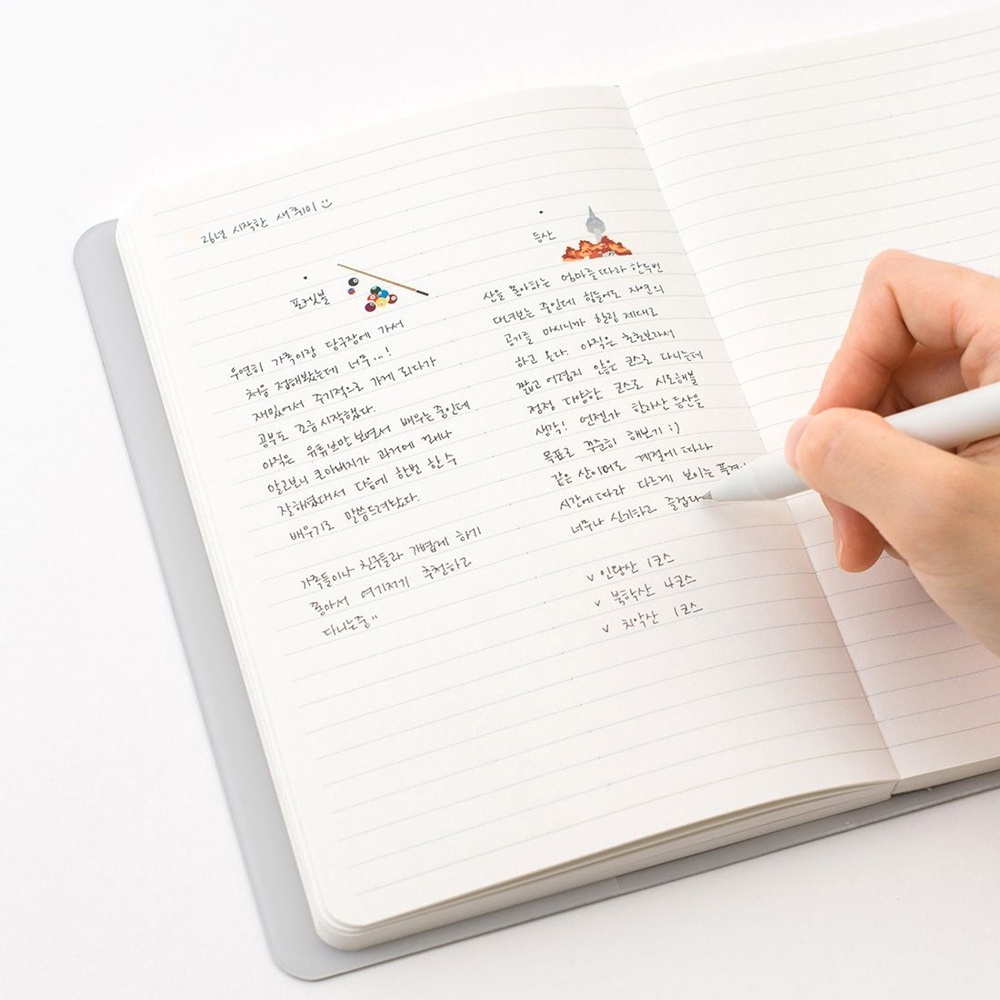 26년 시작한 새 취미
포켓볼
우연히 가족이랑 당구장에 가서
처음 접해봤는데 너무...!
재밌어서 주기적으로 가게 되다가
공부도 조금 시작했다.
아직은 유튜브만 보면서 배우는 중인데
알고보니 큰아버지가 과거에 꽤나
잘하셨대서 다음에 한번 한 수
배우기로 말씀드려놨다.
가족들이나 친구들과 가볍게 하기
좋아서 여기저기 추천하고
다니는중"
등산
산을 좋아하는 엄마를 따라 한두번
다녀보는 중인데 힘들어도 자연의
공기를 마시니까 힐링 제대로
하고 온다. 아직은 초보라서
짧고 어렵지 않은 코스로 다니는데
점점 다양한 코스로 시도해볼
생각! 언젠가 한라산 등산을
목표로 꾸준히 해보기 :)
같은 산이어도 계절에 따라
시간에 따라 다르게 보이는
너무나 신기하고 즐겁다
v 인왕산 1코스
v 북학산 4코스
v 치악산 1코스